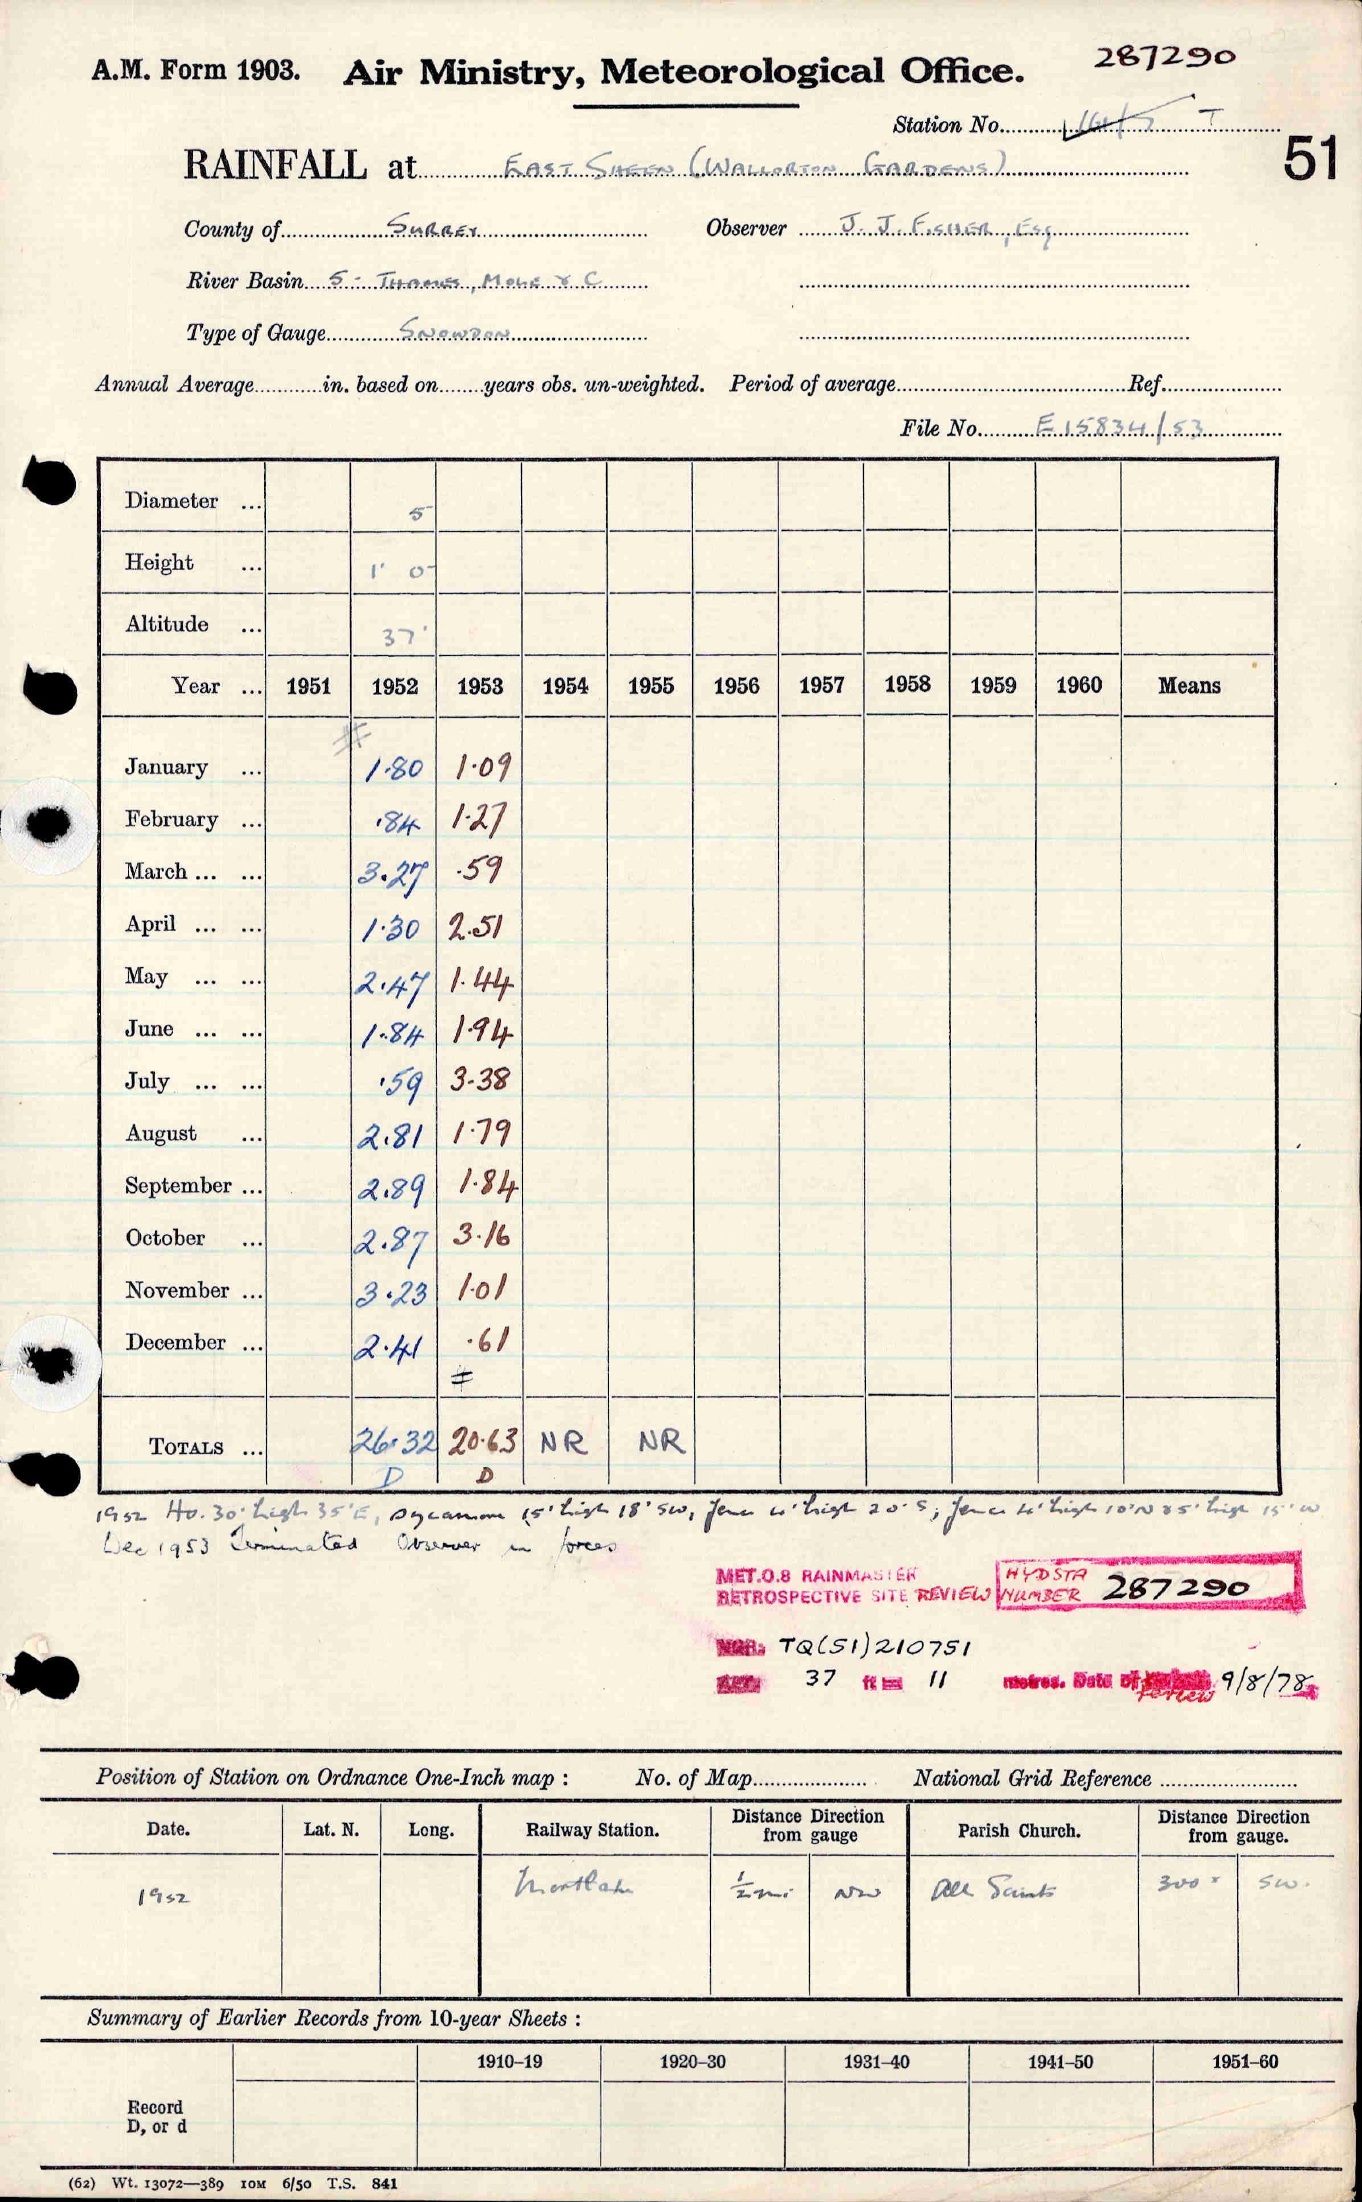 287290
A.M. Form 1903. Air Ministry, Meteorological Office.
Station No. T
51
RAINFALL at EAST SHEEN (WALLORTON GARDENS)
County of SURREY Observer J. J. FISHER, Esq
River Basin 5 - THAMES, MOLE & C
Type of Gauge SNOWDON
Annual Average in. based on years obs. un-weighted. Period of average Ref.
File No. E15834/53
Diameter ... 5
Height ... 1' 0"
Altitude ... 37'
Year ... 1951 1952 1953 1954 1955 1956 1957 1958 1959 1960 Means
#
January ... 1.80 1.09
February ... .84 1.27
March ... ... 3.27 .59
April ... ... 1.30 2.51
May ... ... 2.47 1.44
June ... ... 1.84 1.94
July ... ... .59 3.38
August ... 2.81 1.79
September ... 2.89 1.84
October ... 2.87 3.16
November ... 3.23 1.01
December ... 2.41 .61
#
TOTALS ... 26.32 20.63 NR NR
D D
1952 Ho. 30' high 35' E, sycamore 15' high 18' SW, fence 4' high 20' S; fence 4' high 10' N & 5' high 15' W
Dec 1953 Terminated Observer in forces
MET.O.8 RAINMASTER
RETROSPECTIVE SITE REVIEW
HYDSTA
NUMBER 287290
NGR. TQ(51)210751
37 ft = 11 metres. Date of review 9/8/78
Position of Station on Ordnance One-Inch map : No. of Map National Grid Reference
Date. Lat. N. Long. Railway Station. Distance Direction from gauge Parish Church. Distance Direction from gauge.
1952 Mortlake 1/2 mi NW All Saints 300 x SW.
Summary of Earlier Records from 10-year Sheets :
1910–19 1920–30 1931–40 1941–50 1951–60
Record
D, or d
(62) Wt. 13072—389 10M 6/50 T.S. 841